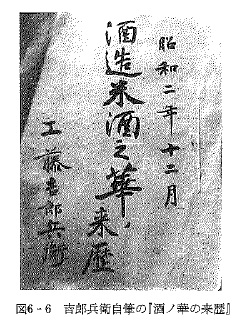 昭和二年十二月
酒造米酒之華、来歴
工藤吉郎兵衛
図6-6 吉郎兵衛自筆の『酒ノ華の来歴』